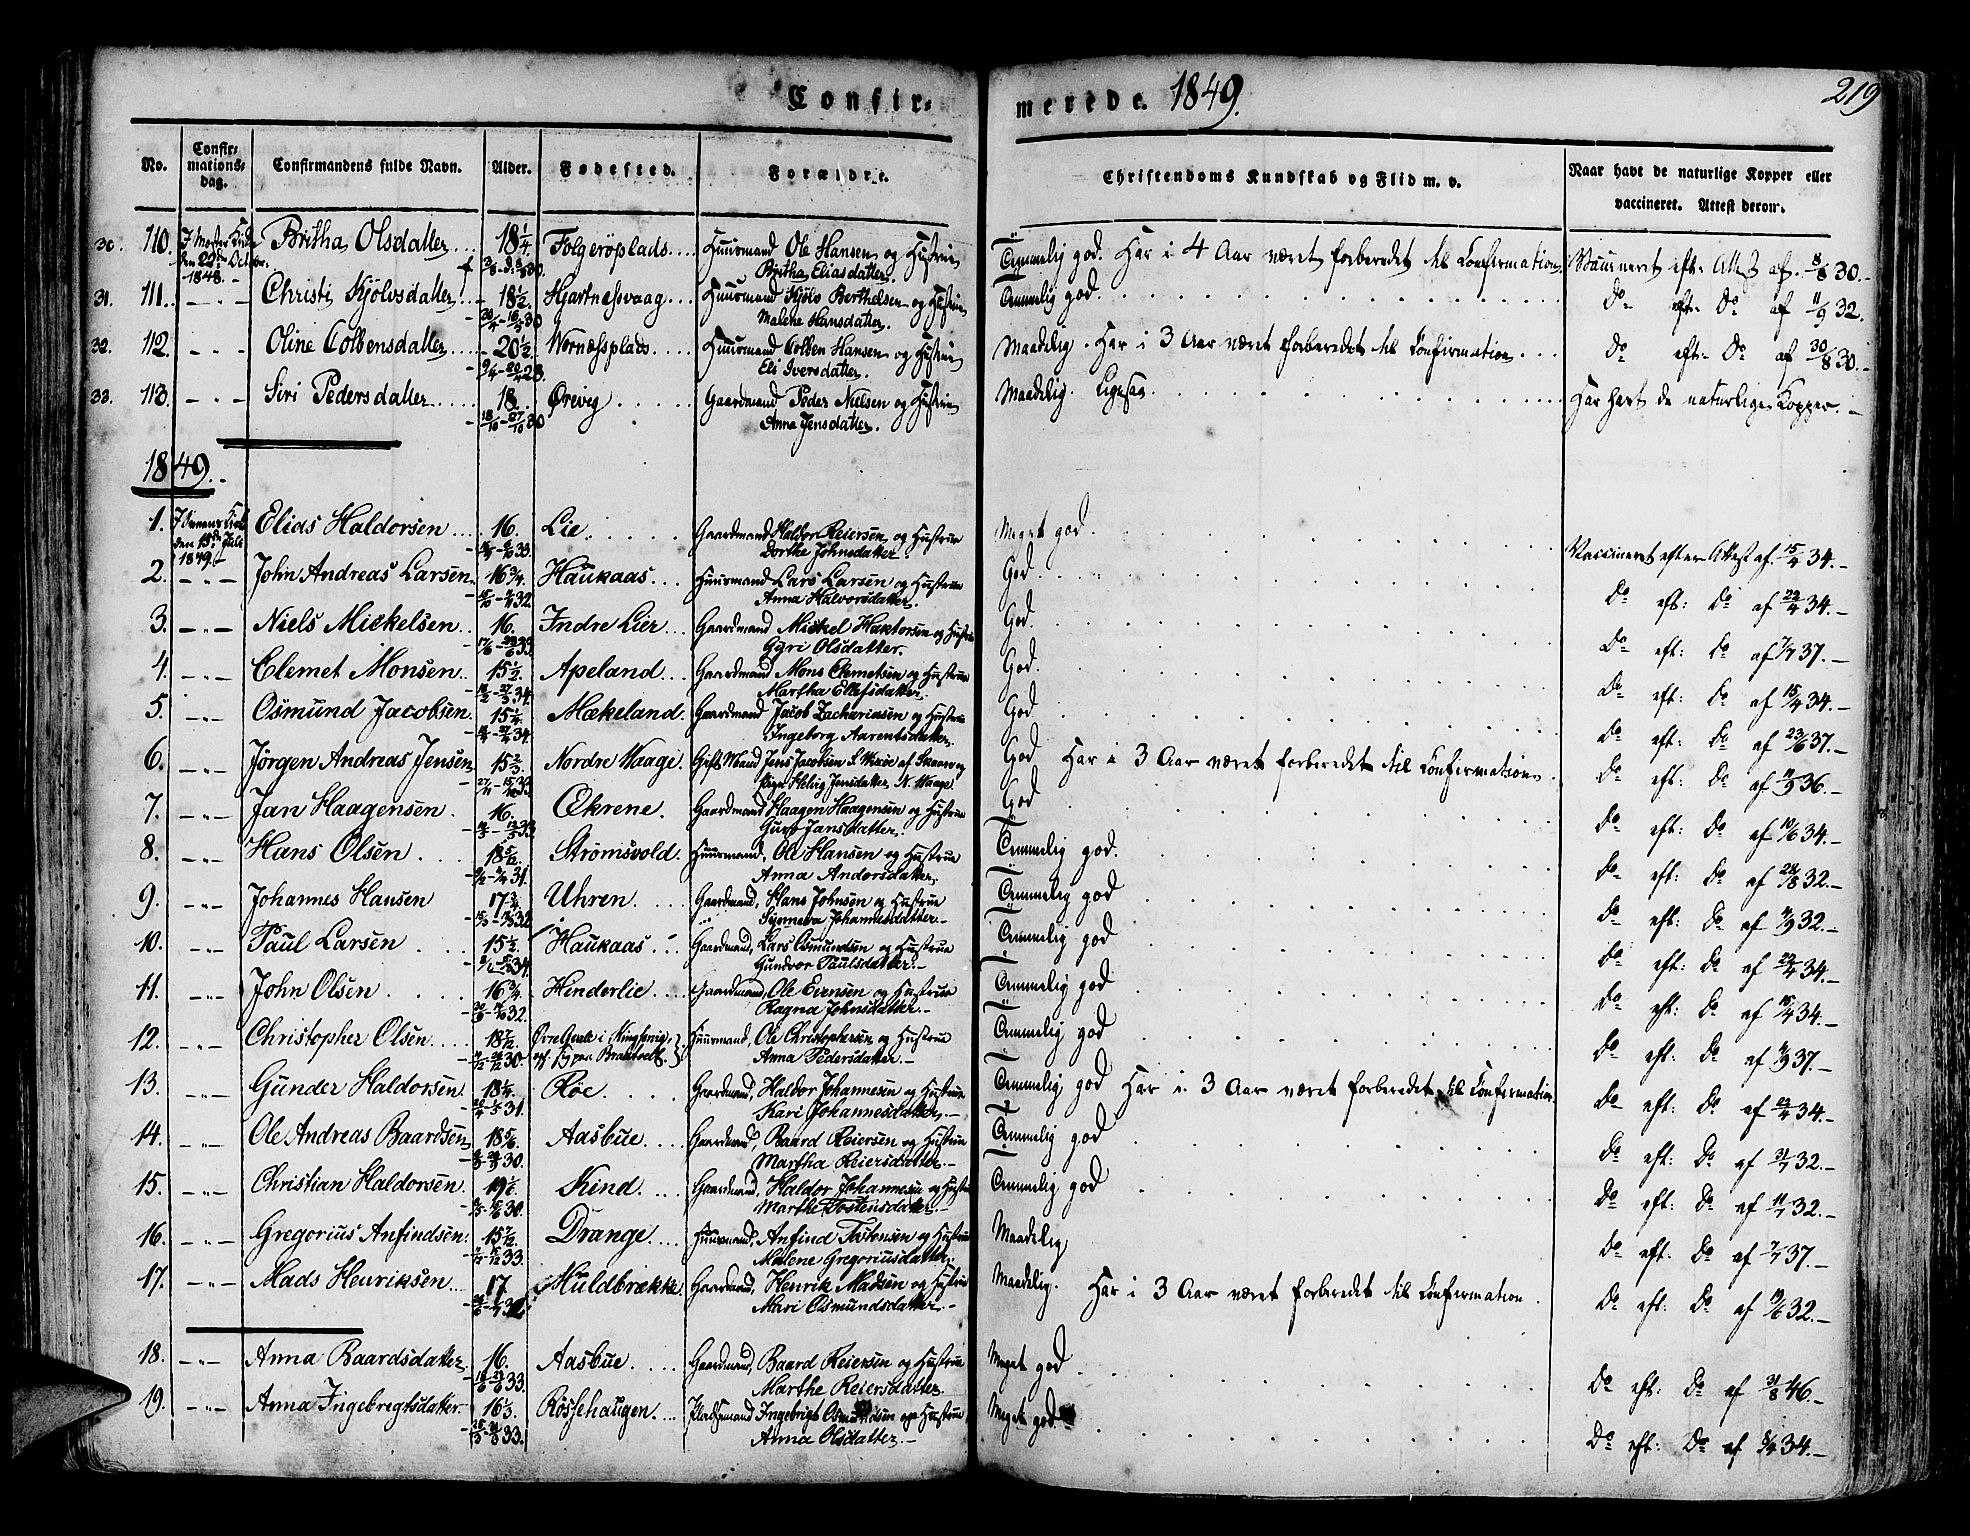 Confir- merede. 1849. 219
No. Confirmationsdag. Confirmandens fulde Navn. Alder. Fødested. Forældre. Christendoms Kundskab og Flid m. v. Naar havt de naturlige Kopper eller vaccineret. Attest derom.
30. 110. den 22 Octbr. 1848. Britha Olsdatter 18 1/4 Folgerøplads Huusmand Ole Hansen og Hustrue Temmelig god. Har i 4 Aar været forberedet til Confirmation Vaccineret eft. Attest af 8/8 30.
Britha Eliasdatter.
31. 111. Christi Kjölvsdatter 18 1/2. Hjartnessvaag Huusmand Kjölv Berthelsen og Hustrue Temmelig god. Do eft. Do af 11/9 32.
Malene Hansdatter.
32. 112. Oline Colbensdatter 20 1/2. Wernessplads Huusmand Colben Hansen og Hustrue Maadelig. Har i 3 Aar været forberedet til Confirmation Do eft. Do af 30/8 30.
Eli Iversdatter.
33. 113. Siri Pedersdatter 18 Ørevig Gaardmand Peder Nielsen og Hustrue Maadelig. Ligesaa Har havt de naturlige Kopper.
18/10 - 27/10 30 Anna Jensdatter.
1849.
1. den 15de Juli 1849. Elias Haldorsen 16. Lie Gaardmand Haldor Reiersen og Hustrue Meget god. Vaccineret efter Attest af 15/4 34.
Dorthe Johnsdatter.
2. John Andreas Larsen 16 3/4. Haukaas Huusmand Lars Larsen og Hustrue God. Do eft: Do af 22/4 34.
Anna Halvorsdatter.
3. Niels Mickelsen 16. Indre Lier Gaardmand Mickel Haktorsen og Hustrue God. Do eft: Do af 7/7 37.
Gyri Olsdatter.
4. Clemet Monsen 15 1/2. Apeland Gaardmand Mons Clemetsen og Hustrue God. Do eft: Do af 15/4 34.
Martha Ellefsdatter.
5. Osmund Jacobsen 15 1/4. Mækeland. Gaardmand Jacob Zachariasen og Hustrue God Do eft: Do af 23/6 37.
Ingeborg Aarentsdatter.
6. Jörgen Andreas Jensen 15 2/3. Nordre Waage. Gift Mand Jens Jacobsen God Har i 3 Aar været forberedet til Confirmationen. Do eft: Do af 36.
Helvig Jensdatter N. Waage.
7. Jan Haagensen 16. Økrene. Gaardmand Haagen Haagensen og Hustrue God Do eft: Do af 10/6 34.
Guro Jansdatter.
8. Hans Olsen 18 5/12. Strømsvold. Huusmand, Ole Hansen og Hustrue Temmelig god. Do eft: Do af 24/8 32.
Anna Andorsdatter.
9. Johannes Hansen 17 3/4. Uhren. Gaardmand, Hans Johnsen og Hustrue Temmelig god Do eft: Do af 32.
Synneva Johannesdatter.
10. Paul Larsen 15 1/2. Haukaas Gaardmand, Lars Osmundsen og Hustrue Temmelig god Do eft: Do af 22/4 34.
Gundvor Paulsdatter.
11. John Olsen 16 3/4. Hinderlie Gaardmand, Ole Evensen og Hustrue Temmelig god Do eft: Do af 15/4 34.
Ragna Johnsdatter.
12. Christopher Olsen 18 7/12. Huusmand, Ole Christophersen og Hustrue Temmelig god Do eft: Do af 37.
Anna Pedersdatter.
13. Gunder Haldorsen. 18 1/6. Røe. Gaardmand, Haldor Johannesen og Hustrue Temmelig god Har i 3 Aar været forberedet til Confirmation. Do eft: Do af 22/4 34.
Kari Johannesdatter.
14. Ole Andreas Baardsen 18 5/6. Aasbue. Gaardmand, Baard Reiersen og Hustrue Temmelig god Do eft: Do af 31/7 32.
Martha Reiersdatter.
15. Christian Haldorsen. 19 1/6. Kind. Gaardmand, Haldor Johannesen og Hustrue Temmelig god Do eft: Do af 11/7 32.
Marthe Tostensdatter.
16. Gregorius Anfindsen. 15 7/12. Drange. Huusmand, Anfind Tostensen og Hustrue Maadelig Do eft: Do af 7/7 37.
Malene Gregoriusdatter.
17. Mads Henriksen. 17 Muldbrække Gaardmand, Henrik Madsen og Hustrue Maadelig. Har i 3 Aar været forberedet til Confirmation. Do eft: Do af 19/6 32.
Mari Osmundsdatter.
18. Anna Baardsdatter 16. Aasbue. Gaardmand, Baard Reiersen og Hustrue Meget god Do eft: Do af 31/8 46.
Marthe Reiersdatter.
19. Anna Ingebregtsdatter. 16 1/3. Røssehaugen. Pladsmand Ingebrigt Osmundsen og Hustrue Meget god Do eft: Do af 34.
Anna Olsdatter.